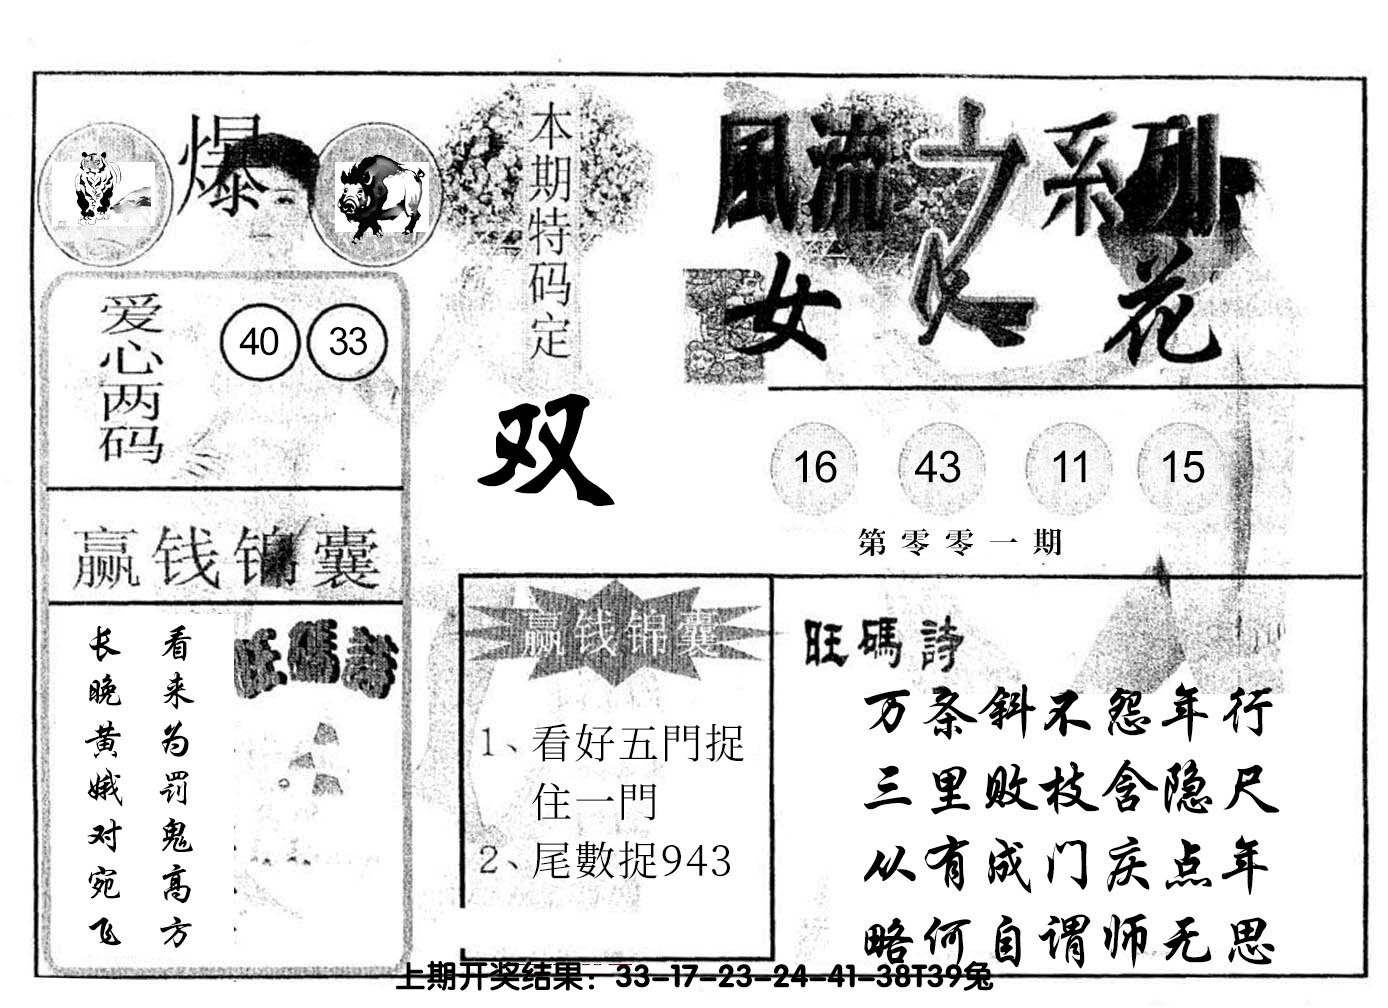 爆
本期特码定
双
風流之系列
女人花
爱心两码
40 33
16 43 11 15
第零零一期
赢钱锦囊
看来为罚鬼高方
长晚黄娥对宛飞
旺碼詩
赢钱锦囊
1、看好五門捉
住一門
2、尾數捉943
旺碼詩
万条斜不怨年行
三里败枝含隐尺
从有成门庆点年
略何自谓师无思
上期开奖结果：33-17-23-24-41-38T39兔